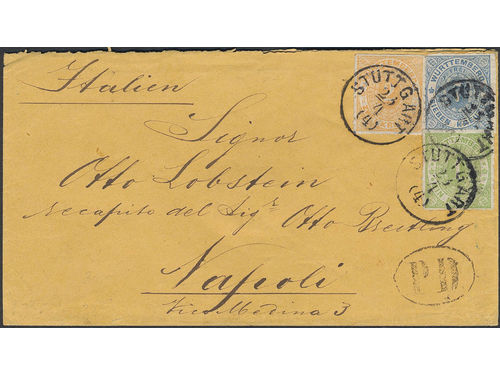 Italien
STUTTGART
23
(4)
WÜRTTEMBERG
STUTTGART
(4)
Signor
Otto Lobstein
recapito del Sigr Otto Breitling
Napoli
Via Medina 3
P D